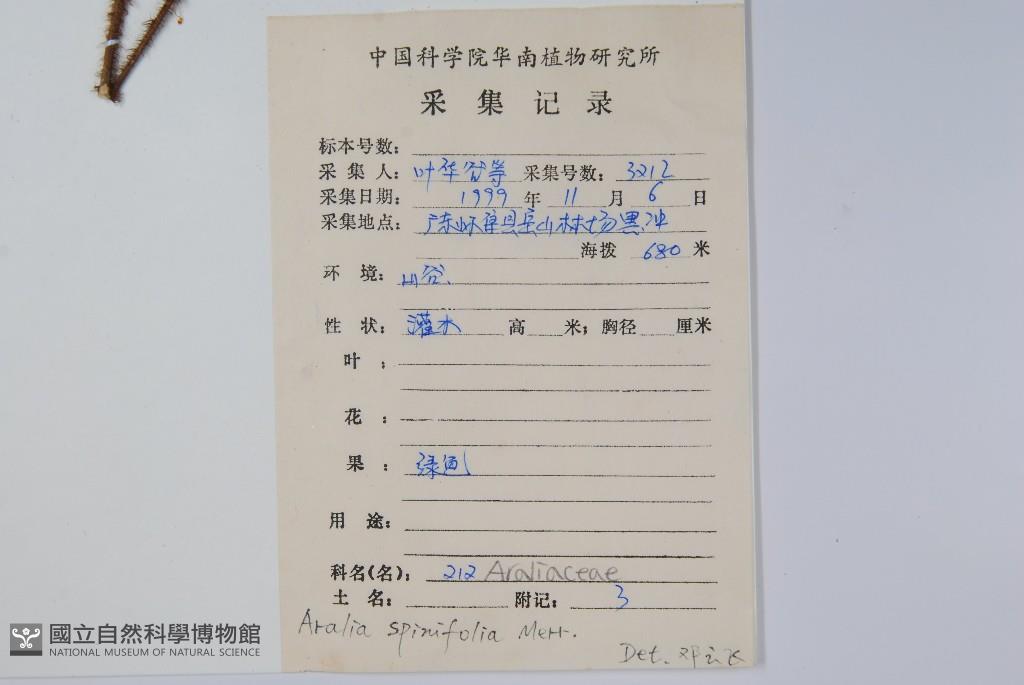 中国科学院华南植物研究所
采集记录
标本号数：
采集人：叶华谷等 采集号数：3212
采集日期：1999年11月6日
采集地点：广东怀集县岳山林场黑冲
海拨 680 米
环境：山谷.
性状：灌木 高 米；胸径 厘米
叶：
花：
果：绿色
用途：
科名(名)：212 Araliaceae
土名： 附记：3
Aralia spinifolia Merr.
Det. 邓云飞
國立自然科學博物館
NATIONAL MUSEUM OF NATURAL SCIENCE